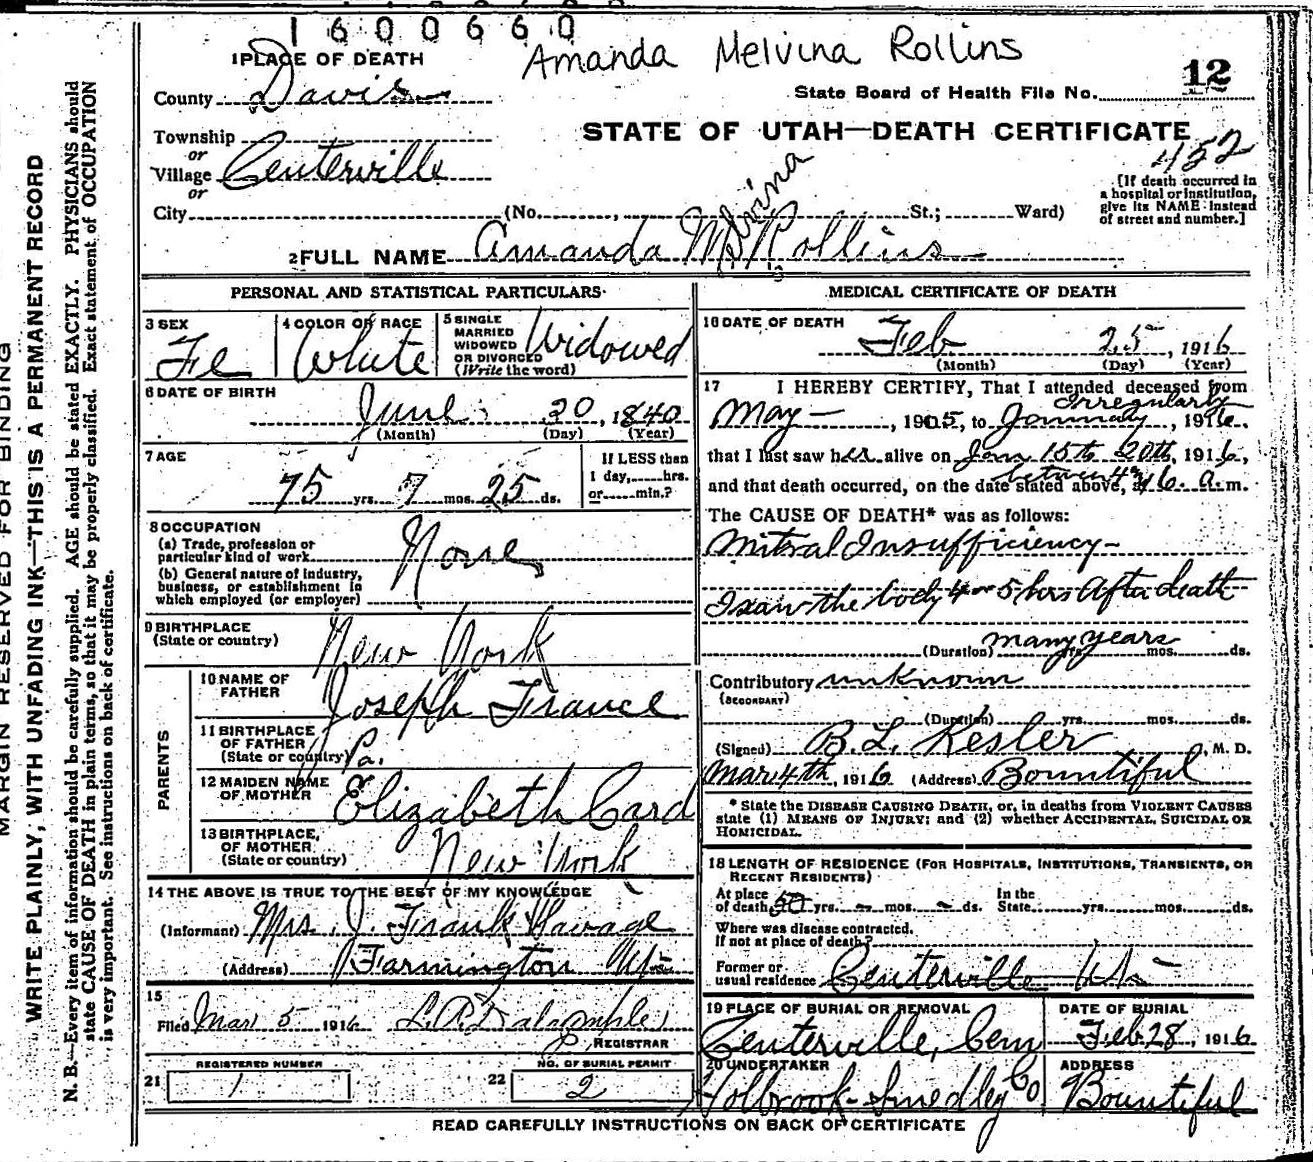 1600660
Amanda Melvina Rollins
12
1 PLACE OF DEATH
County Davis
State Board of Health File No.
STATE OF UTAH—DEATH CERTIFICATE
452
Township
or
Village Centerville
or
City (No. , St.; Ward)
[If death occurred in
a hospital or institution,
give its NAME instead
of street and number.]
Melvina
2 FULL NAME Amanda M. Rollins
PERSONAL AND STATISTICAL PARTICULARS
3 SEX
Fe
4 COLOR OR RACE
White
5 SINGLE
MARRIED
WIDOWED
OR DIVORCED
(Write the word)
Widowed
6 DATE OF BIRTH
June 30, 1840
(Month) (Day) (Year)
7 AGE
75 yrs. 7 mos. 25 ds.
If LESS than
1 day, hrs.
or min.?
8 OCCUPATION
(a) Trade, profession or
particular kind of work
None
(b) General nature of industry,
business, or establishment in
which employed (or employer)
9 BIRTHPLACE
(State or country)
New York
PARENTS
10 NAME OF
FATHER
Joseph France
11 BIRTHPLACE
OF FATHER
(State or country)
Pa.
12 MAIDEN NAME
OF MOTHER
Elizabeth Card
13 BIRTHPLACE,
OF MOTHER
(State or country)
New York
14 THE ABOVE IS TRUE TO THE BEST OF MY KNOWLEDGE
(Informant) Mrs. J. Frank
(Address) Farmington
15
Filed Mar 5 1916
REGISTRAR
REGISTERED NUMBER
21 1
NO. OF BURIAL PERMIT
22 2
MEDICAL CERTIFICATE OF DEATH
16 DATE OF DEATH
Feb 25, 1916
(Month) (Day) (Year)
17 I HEREBY CERTIFY, That I attended deceased from
Irregularly
May — , 1905, to January, 1916.
that I last saw her alive on Jan 15 to 20th, 1916,
between 4 &
and that death occurred, on the date stated above, at 6. a.m.
The CAUSE OF DEATH* was as follows:
Mitral Insufficiency—
I saw the body 4 or 5 hrs After death
(Duration) many years yrs. mos. ds.
Contributory unknown
(SECONDARY)
(Duration) yrs. mos. ds.
(Signed) B. L. Kesler, M. D.
Mar 4th, 1916 (Address) Bountiful
* State the DISEASE CAUSING DEATH, or, in deaths from VIOLENT CAUSES
state (1) MEANS OF INJURY; and (2) whether ACCIDENTAL, SUICIDAL OR
HOMICIDAL.
18 LENGTH OF RESIDENCE (FOR HOSPITALS, INSTITUTIONS, TRANSIENTS, OR
RECENT RESIDENTS)
At place
of death 50 yrs. - mos. - ds.
In the
State yrs. mos. ds.
Where was disease contracted,
If not at place of death?
Former or
usual residence Centerville
19 PLACE OF BURIAL OR REMOVAL
Centerville, Cem
DATE OF BURIAL
Feb. 28, 1916
20 UNDERTAKER
Holbrook-Smedley Co
ADDRESS
Bountiful
READ CAREFULLY INSTRUCTIONS ON BACK OF CERTIFICATE
MARGIN RESERVED FOR BINDING
WRITE PLAINLY, WITH UNFADING INK—THIS IS A PERMANENT RECORD
N. B.—Every item of information should be carefully supplied. AGE should be stated EXACTLY. PHYSICIANS should
state CAUSE OF DEATH in plain terms, so that it may be properly classified. Exact statement of OCCUPATION
is very important. See instructions on back of certificate.